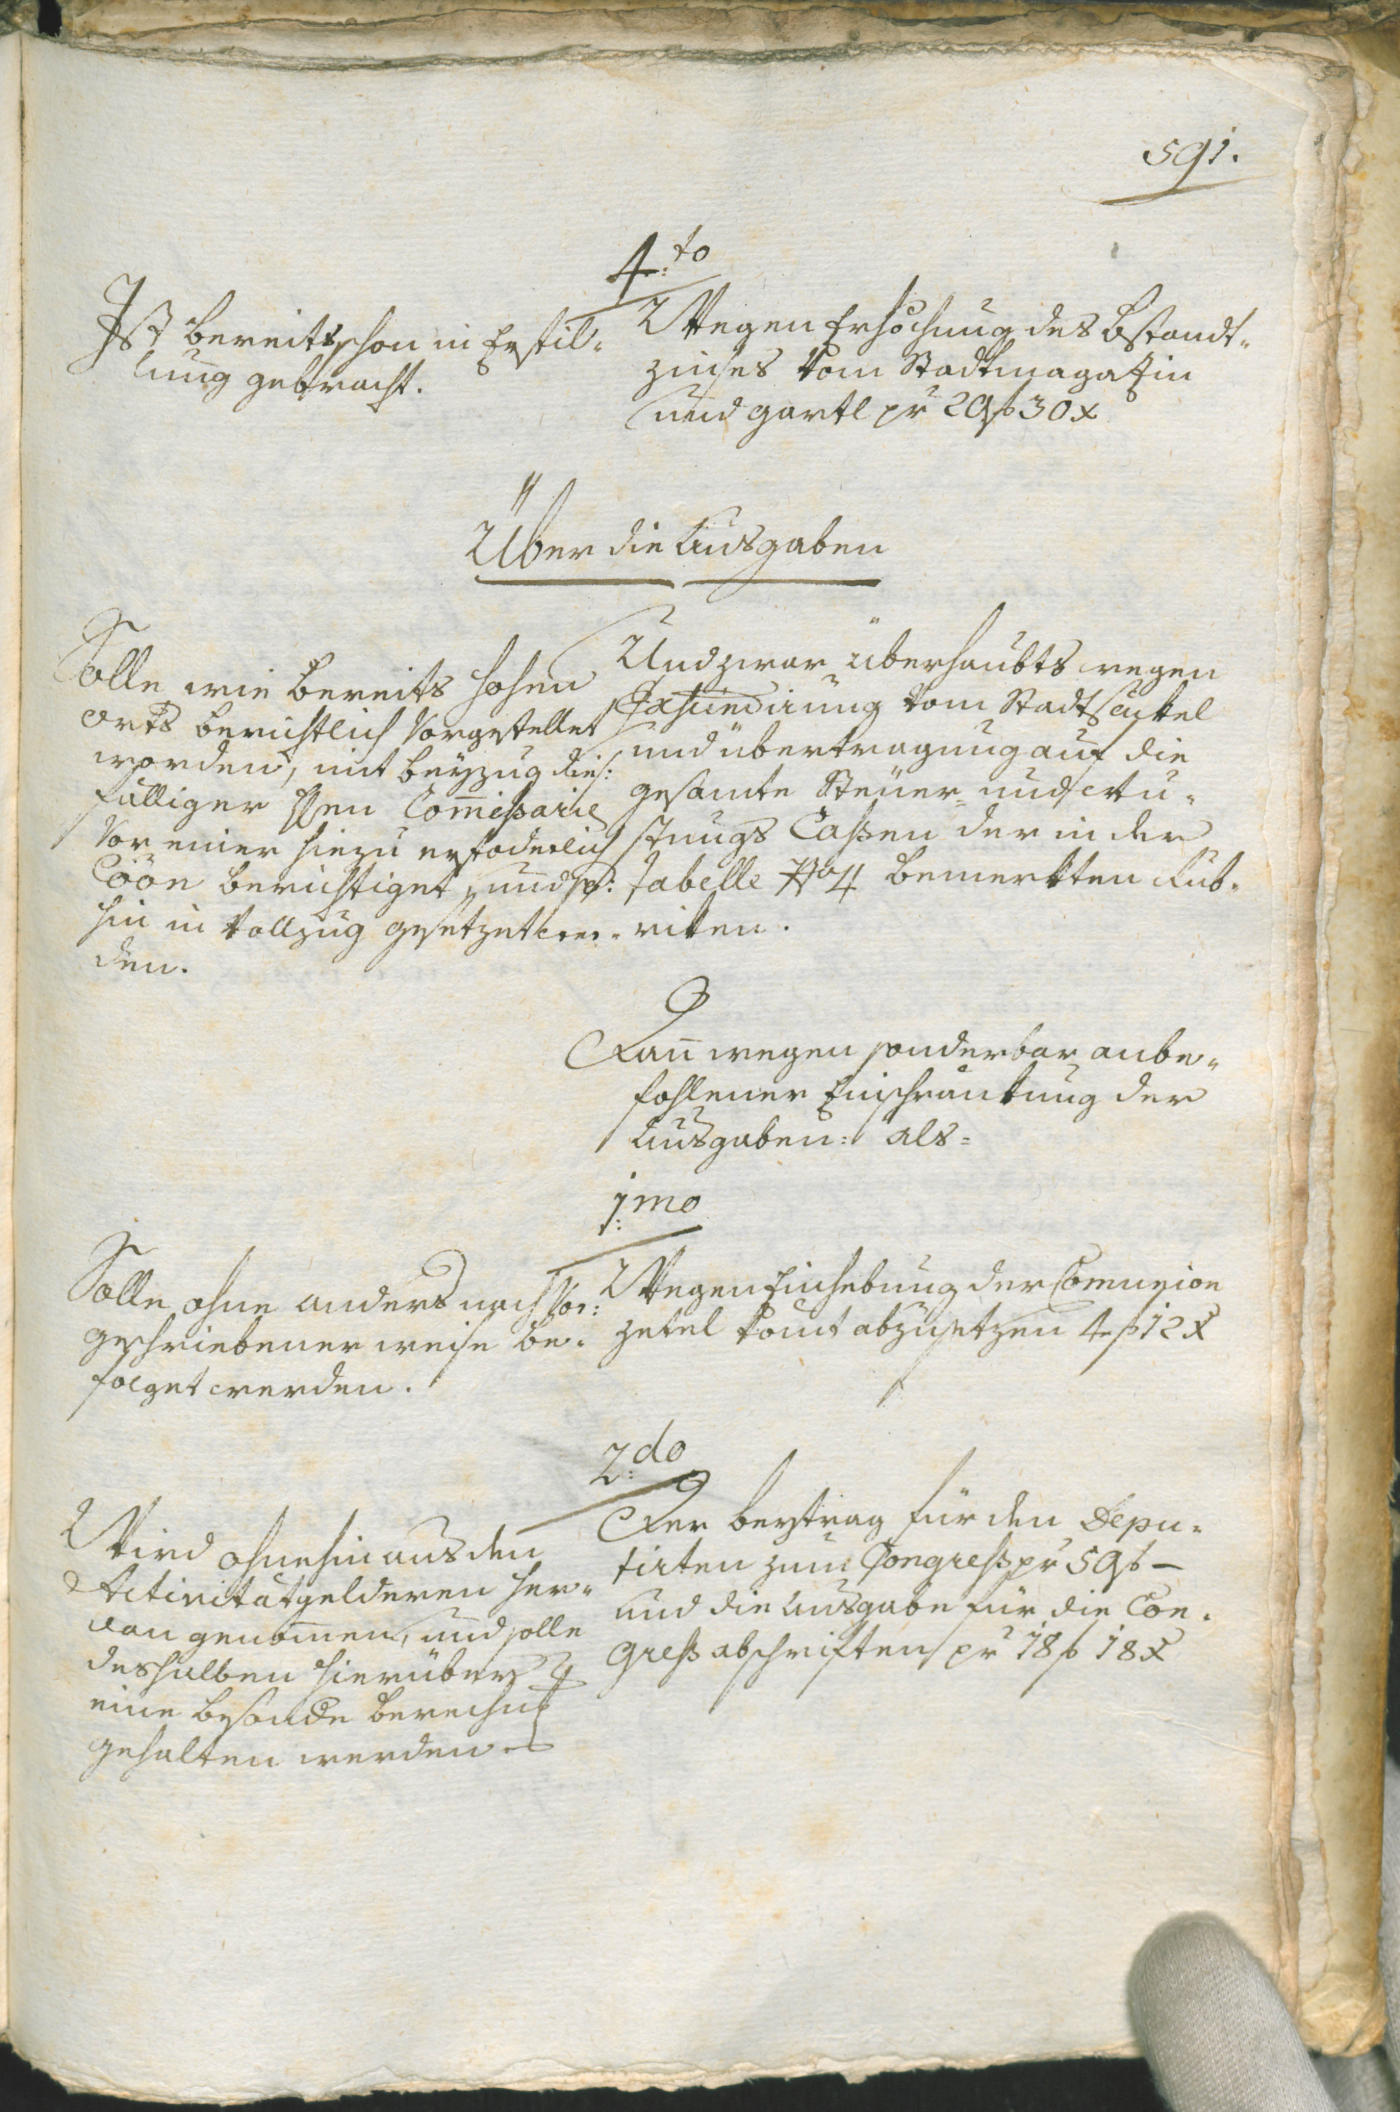 591.
4:to
Ist bereits schon in Erfül-
lung gebracht.
Wegen Erhöhung des Bstandt-
zinses vom Stadtmagazin
und gartl pr 2 f 30 x
Über die Ausgaben
Solle wie bereits hohen
orts berichtlich vorgestellet
worden, mit beyzug dies:
fälliger Hen Comissarie
vor einer hiezu erfoderlich
Coön berichtiget, und so:
hin in vollzug gesetzet wer-
den.
Und zwar überhaubts wegen
Exscindirung vom Stadtseckel
und übertragung auf die
gesamte Steüer- und Rü-
stungs Cassen der in der
tabelle No 4 bemerkten Rub-
riken.
Dan wegen sonderbar anbe-
fohlener Einschränkung der
Ausgaben: als=
1:mo
Solle ohne anders nach vor:
geschriebener weise be-
folget werden.
Wegen Einhebung der Comunion
zetel komt abzusetzen 4 f 12 x
2:do
Wird ohnehin aus den
Activitätgelderen her-
dan genomen, und solle
deshalben hierüber
eine besonde berechng
gehalten werden.
Der beytrag für den Depu-
tirten zum Congress pr 59 f –
und die Ausgabe für die Con-
gress abschriften pr 18 f 18 x